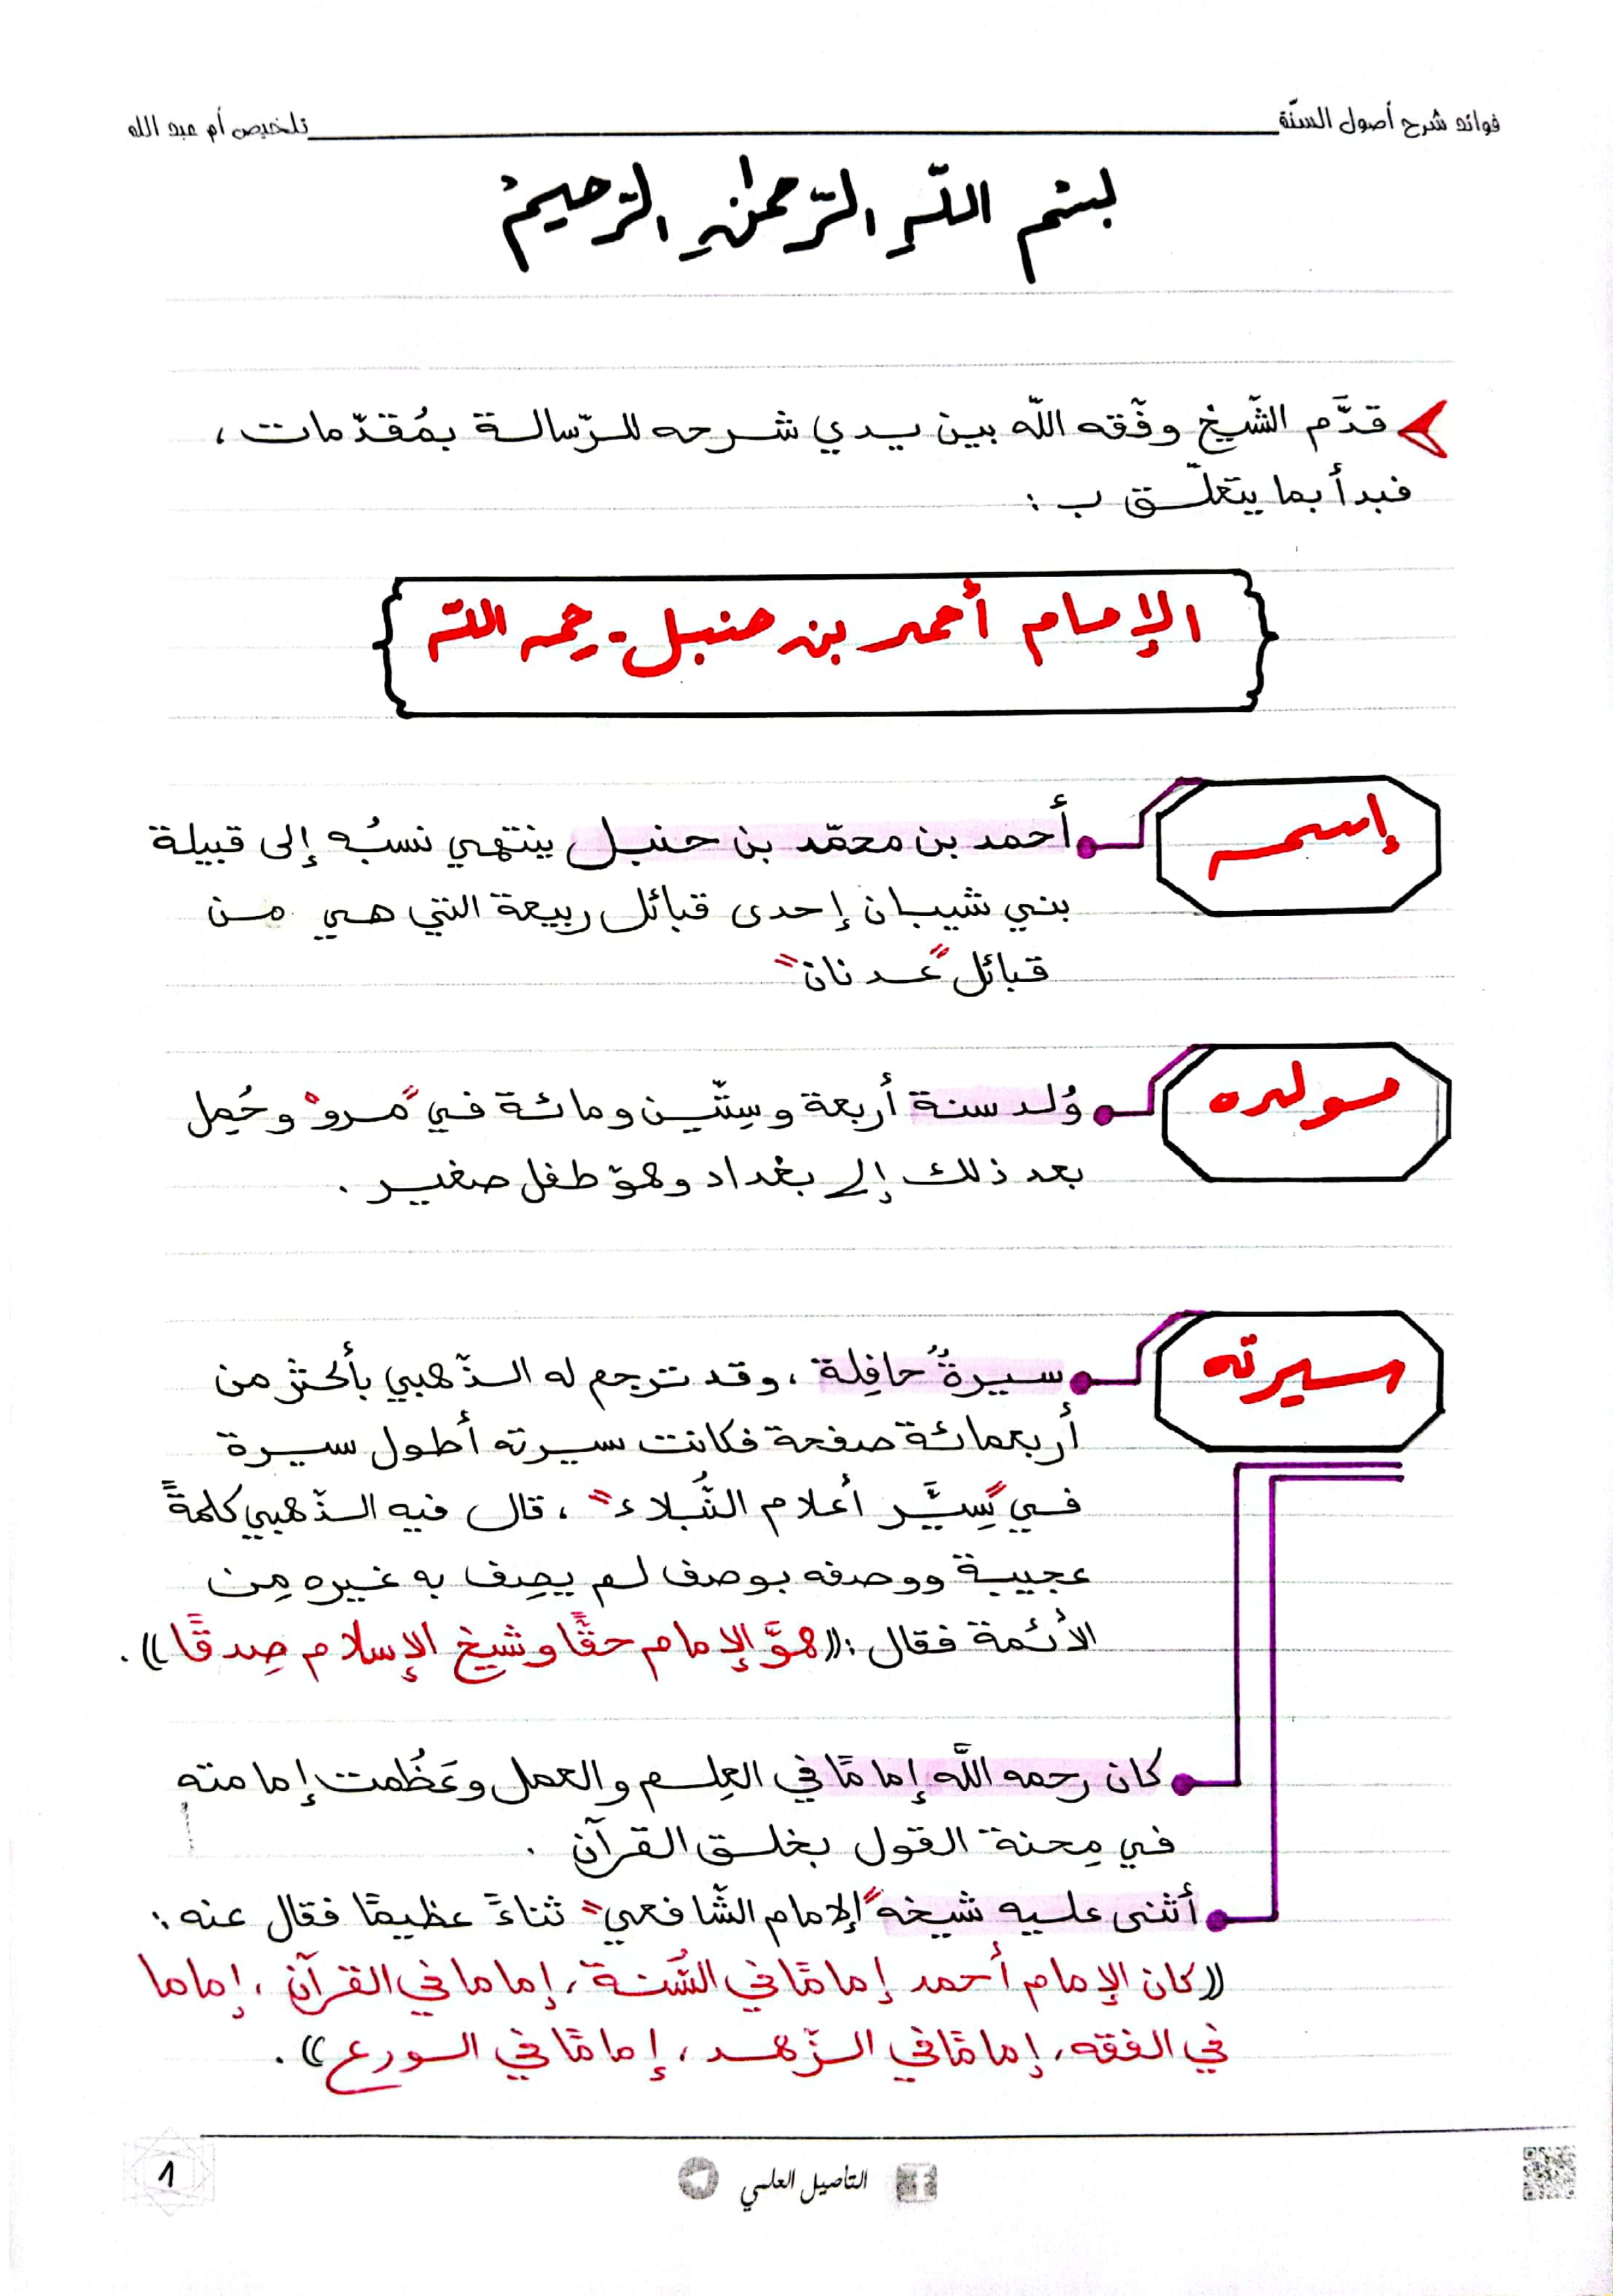 فوائد شرح أصول السنّة
تلخيص أم عبد الله
بسْم اللّهِ الرّحمٰنِ الرّحيمْ
قدَّم الشّيخ وفّقه اللّه بين يدي شرحه للرّسالة بمُقدّمات،
فبدأ بما يتعلّق ب :
الإمام أحمد بن حنبل - رحمه اللّه
إسمه
أحمد بن محمّد بن حنبل ينتهي نسبُه إلى قبيلة
بني شيبان إحدى قبائل ربيعة التي هي من
قبائل "عدنان"
مولده
وُلد سنة أربعة وسِتّين ومائة في "مرو" وحُمِل
بعد ذلك إلى بغداد وهو طفل صغير .
سيرته
سيرةٌ حافِلة ، وقد ترجم له الذّهبي بأكثر من
أربعمائة صفحة فكانت سيرته أطول سيرة
في "سِيَر أعلام النُّبلاء" ، قال فيه الذّهبي كلمةً
عجيبة ووصفه بوصف لم يصِف به غيره مِن
الأئمة فقال : ((هوَ الإمام حقًّا وشيخ الإسلام صِدقًا)) .
كان رحمه اللَّه إمامًا في العِلم والعمل وعَظُمت إمامته
في مِحنة القول بخلق القرآن .
أثنى عليه شيخه "الإمام الشّافعي" ثناءً عظيمًا فقال عنه :
((كان الإمام أحمد إمامًا في السُّنة، إماما في القرآن ، إماما
في الفقه، إمامًا في الزّهد ، إمامًا في الورع)) .
التأصيل العلمي
1